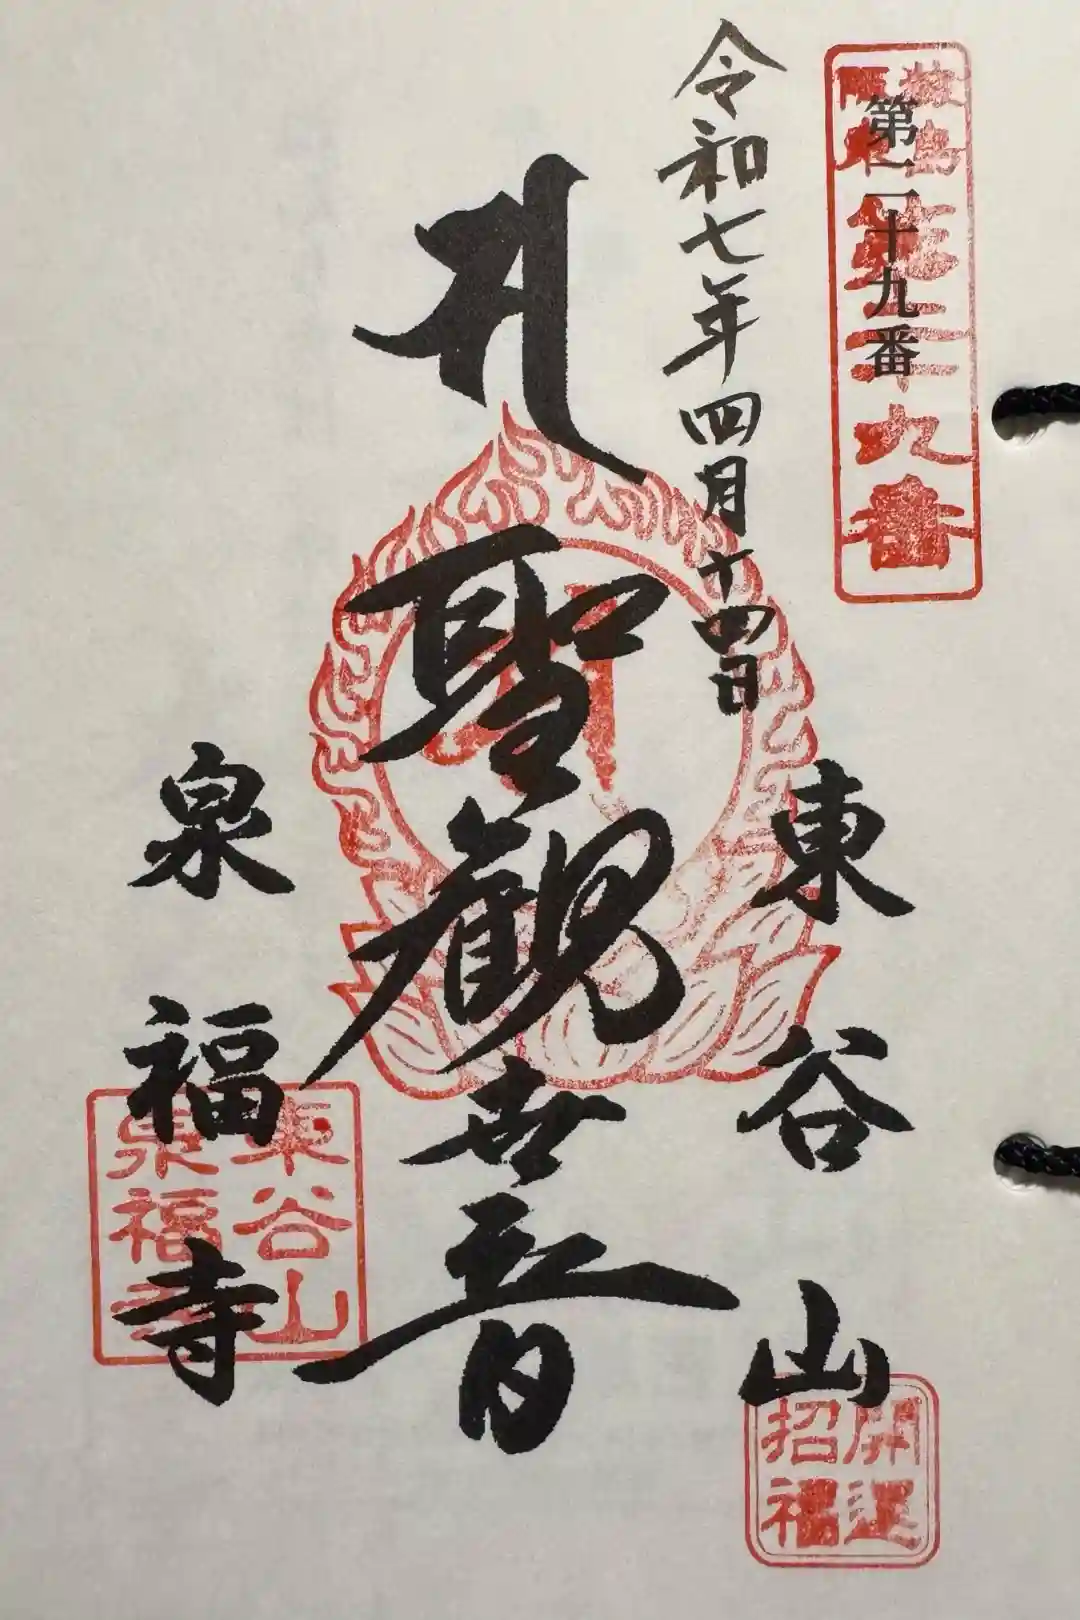 第二十九番
猿島
阪東
第二十九番
令和七年四月十四日
東谷山
聖観世音
泉福寺
開運
招福
東谷山
泉福寺